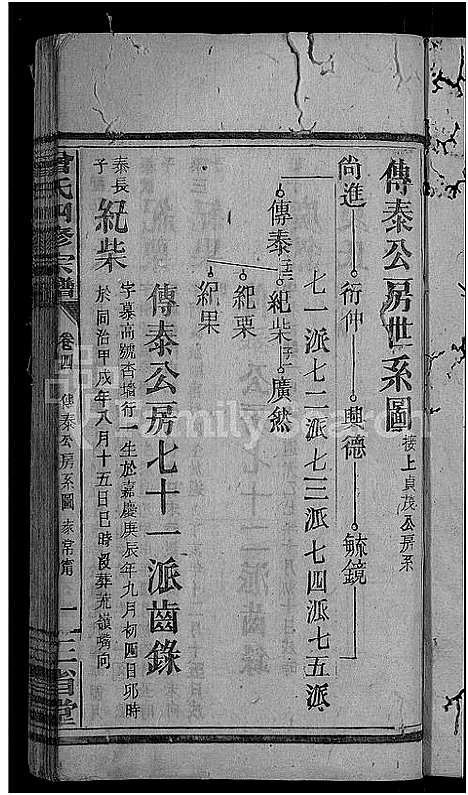 傳泰公房世系圖 接上貞茂公房系
尚進 衍仲 興德 毓鏡
七一派 七二派 七三派 七四派 七五派
傳泰 紀柴 廣然
紀栗
紀果
傳泰公房七十一派齒錄
泰長子 紀柴 字慕高號杏墻行一生於嘉慶庚辰年九月初四日卯時
於同治甲戌年八月十五日巳時歿葬荒嶺嘴向
曾氏四修宗譜 卷四 傳泰公房系圖 一 三省堂
FamilySearch